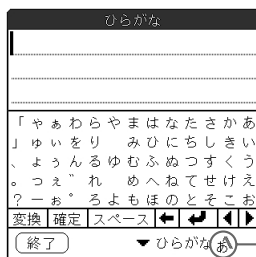 ひらがな
「ゃぁわらやまはなたさかあ
」ゅぃをり みひにちしきい
、ょぅんるゆむふぬつすくう
。っぇ゛れ めへねてせけえ
?ーぉ゜ろよもほのとそこお
変換 確定 スペース ← ↵ ◀ ▶
終了 ▼ ひらがな あ A